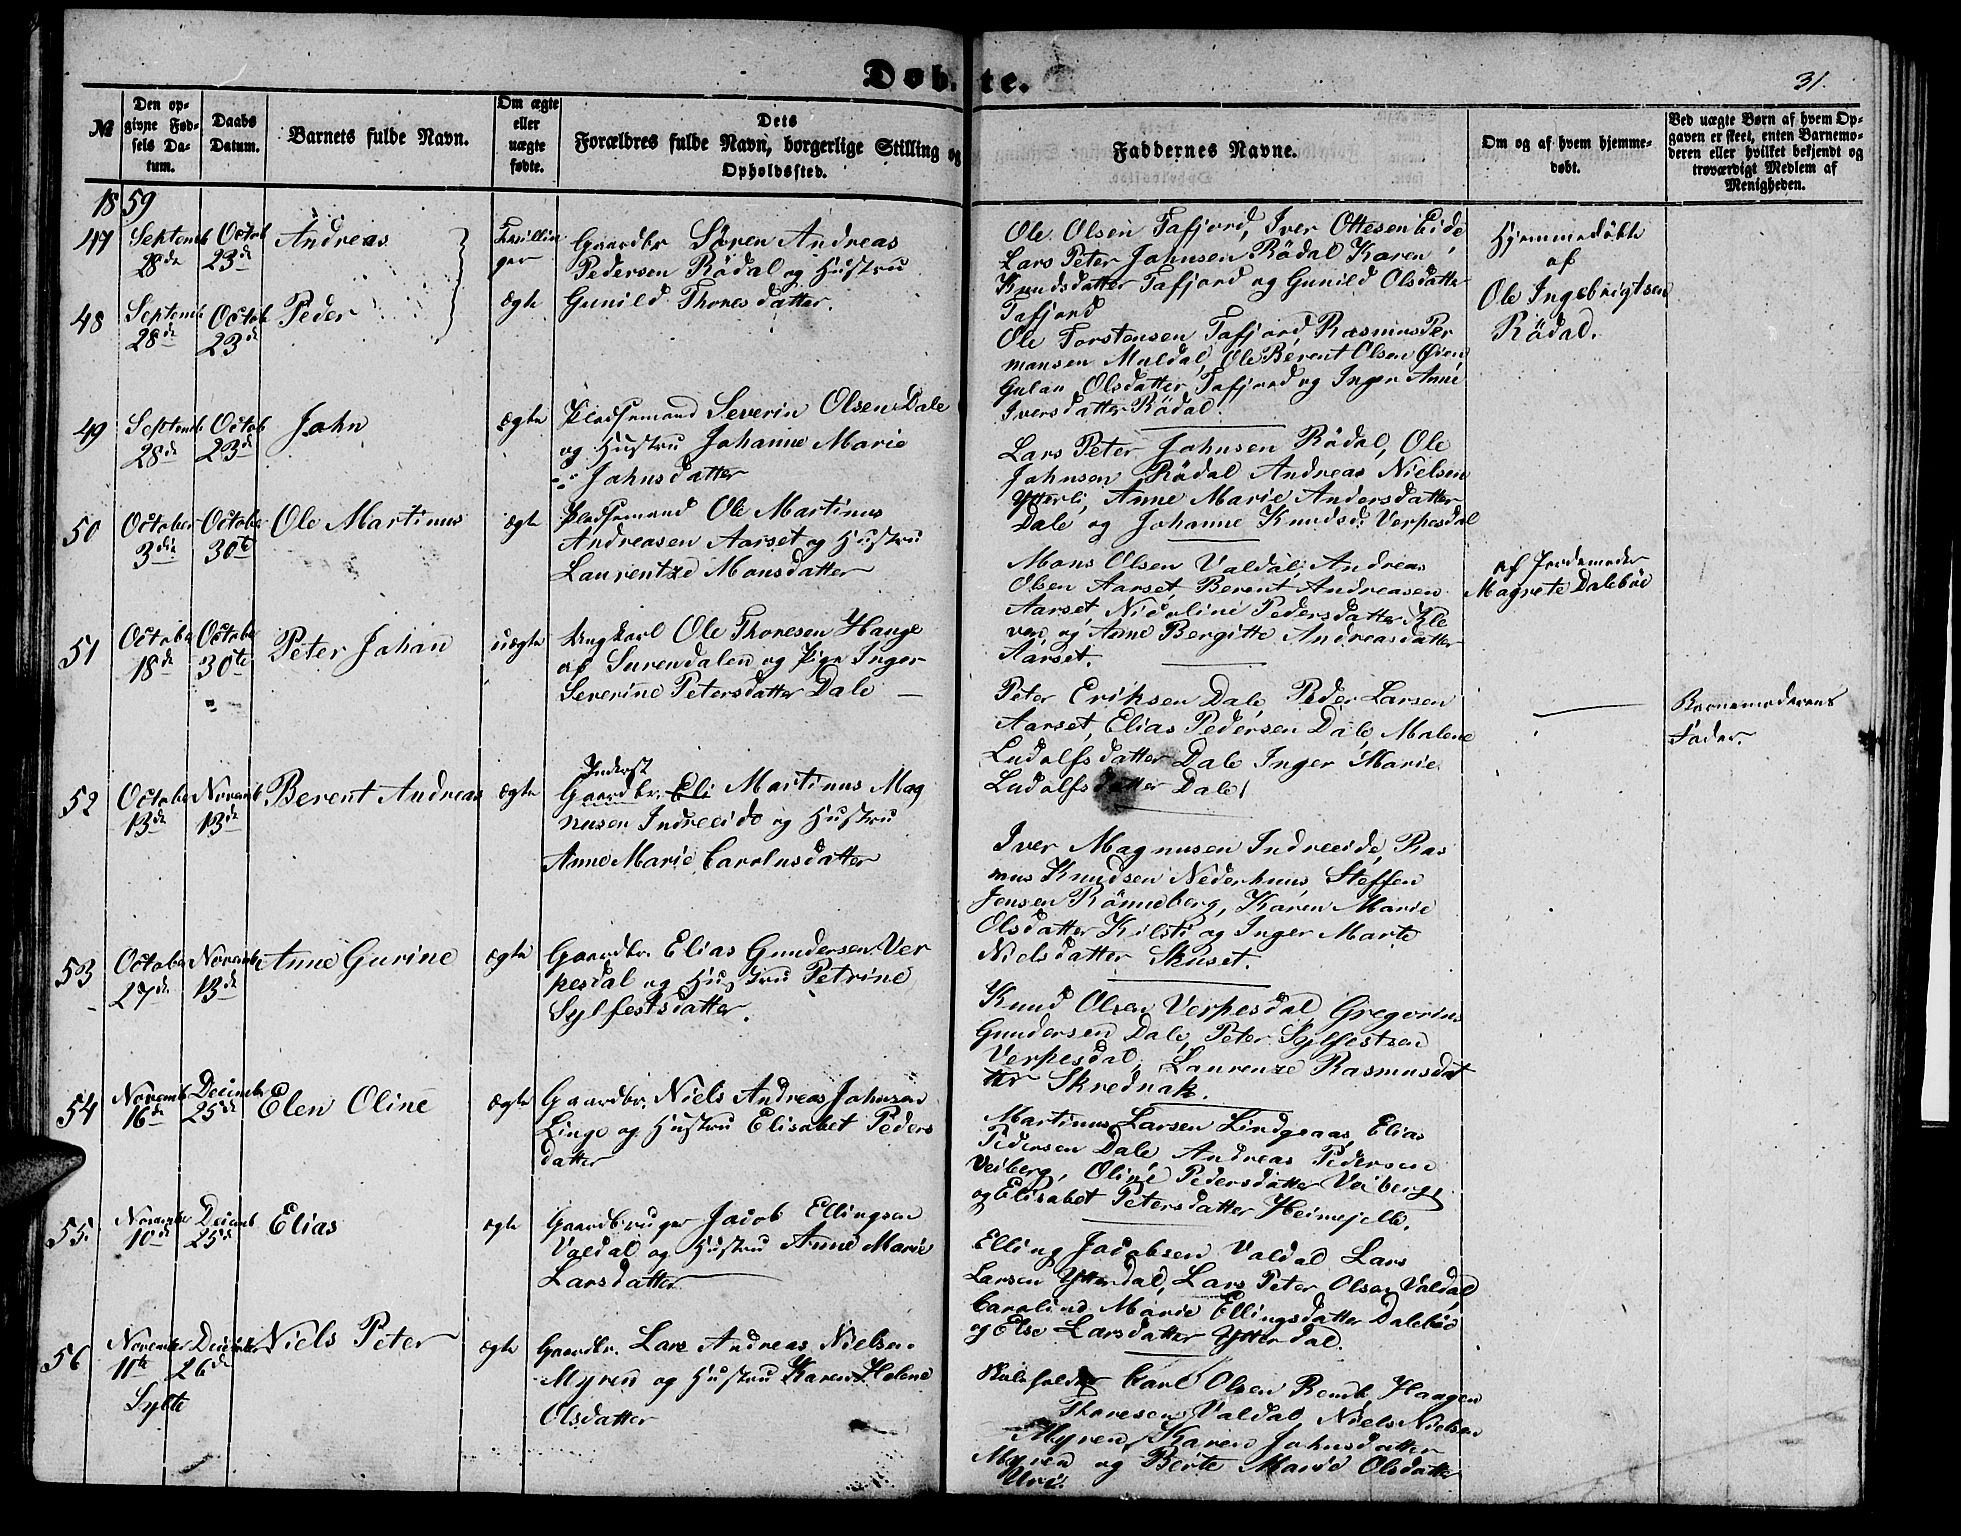 Døbte.
31.
№
Den opgivne Fødsels Datum.
Daabs Datum.
Barnets fulde Navn.
Om ægte eller uægte fødte.
Dets Forældres fulde Navn, borgerlige Stilling og Opholdssted.
Faddernes Navne.
Om og af hvem hjemmedøbt.
Ved uægte Børn af hvem Opgaven er skeet, enten Barnemoderen eller hvilket bekjendt og troværdigt Medlem af Menigheden.
1859
47 Septemb 28de Octob 23de Andreas
Gaardbr Sören Andreas
Pedersen Rödal og Hustru
Gunild Thoresdatter.
Ole Olsen Tafjord, Iver Ottesen Eide
Lars Peter Johnsen Rödal Karen
Knudsdatter Tafjord og Gunild Olsdatter
Tafjord
Hjemmedöbte
af
Ole Ingebrigtsen
Rödal.
48 Septemb 28de Octob 23de Peder ægte
Ole Torstensen Tafjord, Rasmus Per
mansen Muldal, Ole Berent Olsen Öien
Olsdatter Tafjord og Inger Anne
Iversdatter Rödal.
49 Septemb 28de Octob 23de John ægte
Pladsemand Severin Olsen Dale
og Hustru Johanne Marie
Johnsdatter
Lars Peter Johnsen Rödal, Ole
Johnsen Rödal Andreas Nielsen
Ytterli, Anne Marie Andersdatter
Dale og Johanne Knudsd. Verpesdal
50 October 3die October 30te Ole Martinus ægte
Pladsemand Ole Martinus
Andreasen Aarset og Hustru
Laurentze Monsdatter
Mons Olsen Valdal, Andreas
Olsen Aarset, Berent Andreasen
Aarset, Nicoline Pedersdatter Kle
ven og Anne Bergitte Andreasdatter
Aarset.
af Jordemoder
Magrete Daleböe
51 October 18de October 30te Peter Johan uægte
Ungkarl Ole Thoresen Hauge
af Surendalen og Pige Inger
Severine Petersdatter Dale —
Peter Eriksen Dale, Peder Larsen
Aarset, Elias Pedersen Dale, Malene
Ludolfsdatter Dale Inger Marie
Ludolfsdatter Dale
Barnemoderens
Fader.
52 October 13de Novemb 13de Berent Andreas ægte
Inderst
Gaardbr. Eli Martinus Mag
nusen Indreeide og Hustru
Anne Marie Carolusdatter
Iver Magnusen Indreeide, Ras
mus Knudsen Nederhuus Steffen
Jensen Rönneberg, Karen Marie
Olsdatter Kilsti og Inger Marte
Nielsdatter Skuset.
53 October 27de Novemb 13de Anne Gurine ægte
Gaardbr. Elias Gundersen Ver
pesdal og Hustru Petrine
Sylfestsdatter.
Knud Olsen Verpesdal, Gregorius
Gundersen Dale, Peter Sylfestsen
Verpesdal, Laurenze Rasmusdat
ter Skrednak.
54 Novemb 16de Decemb 25de Elen Oline ægte
Gaardbr. Niels Andreas Johnsen
Linge og Hustru Elisabet Peders
datter
Martinus Larsen Lindgaas, Elias
Pedersen Dale Andreas Pedersen
Veiberg, Oline Pedersdatter Veiberg
og Elisabet Petersdatter Heimejelle.
55. November 10de Decemb 25de Elias ægte
Gaardbruger Jacob Ellingsen
Valdal og Hustru Anne Marie
Larsdatter
Elling Jacobsen Valdal Lars
Larsen Ytterdal, Lars Peter Olsen Valdal
Caroline Marie Ellingsdatter Daleböe
og Else Larsdatter Ytterdal.
56 November 11te December 26de Niels Peter ægte
Sylte
Gaardbr. Lars Andreas Nielsen
Myren og Hustru Karen Helene
Olsdatter
Skoleholder Carl Olsen Remb Haagen
Thoresen Valdal, Niels Nielsen
Myren, Karen Johnsdatter
Myren og Berte Marie Olsdatter
Uri.